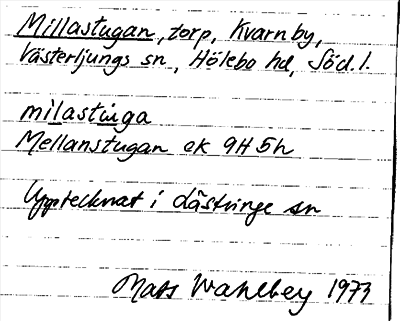 Millastugan, torp, Kvarnby,
Västerljungs sn, Hölebo hd, Söd.l.
milastuga
Mellanstugan ek 9H5h
Upptecknat i Lästringe sn
Mats Wahlberg 1973